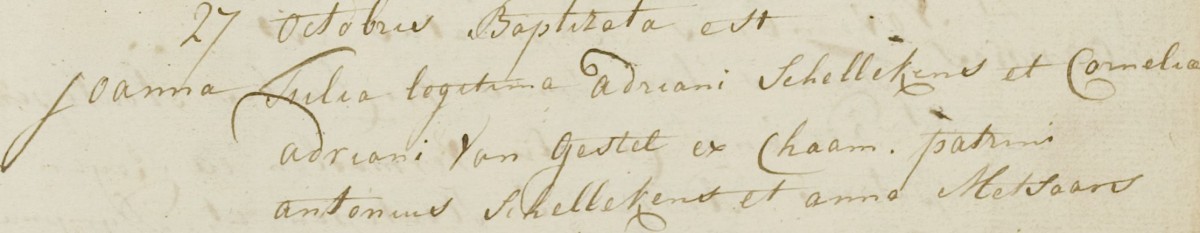 27 octobris Baptizata est
Joanna Filia legitima adriani Schellekens et Cornelia
adriani Van gestel ex Chaam. patrini
antonius Schellekens et anna Metsaars